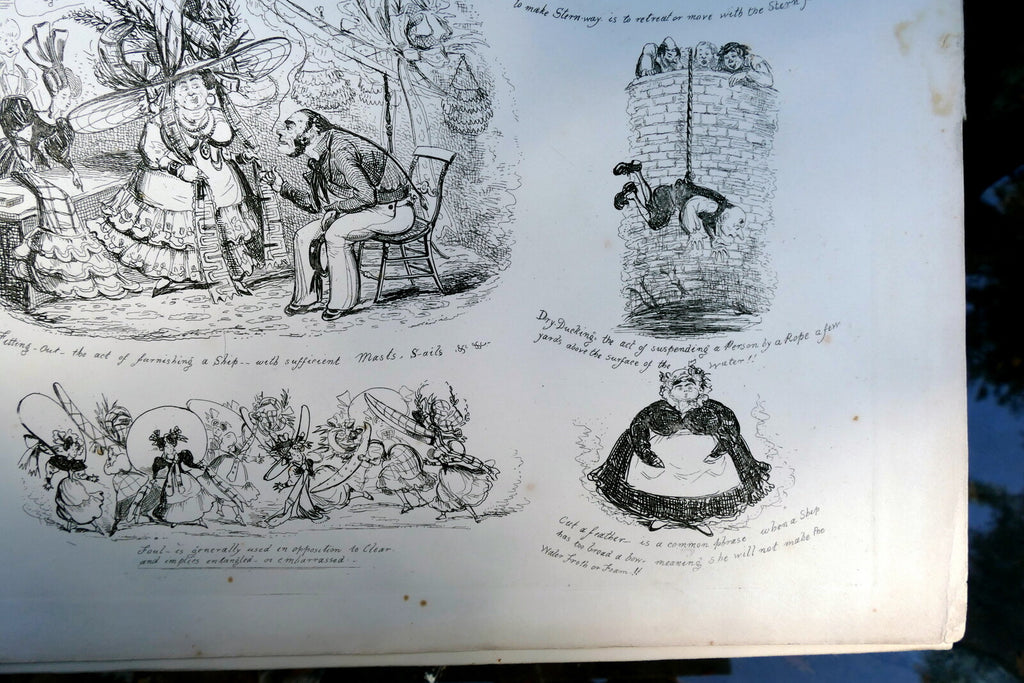 to make Sternway is to retreat or move with the Stern
Fitting-Out- the act of furnishing a Ship -- with sufficient Masts, Sails
Dry Ducking, the act of suspending a Person by a Rope a few
yards above the surface of the water!!
Foul- is generally used in opposition to Clear
and implies entangled- or embarrassed.
Cut a feather is a common phrase when a Ship
has too broad a bow, meaning she will not make
Water Froth or Foam!!